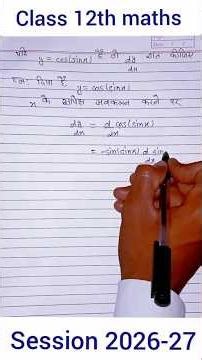 Class 12th maths
यदि
y = cos(sinx) है तो dy/dx ज्ञात कीजिए
हल: दिया है y = cos(sinx)
x के सापेक्ष अवकलन करने पर
dy/dx = d/dx cos(sinx)
= -sin(sinx) d/dx sin
Session 2026-27